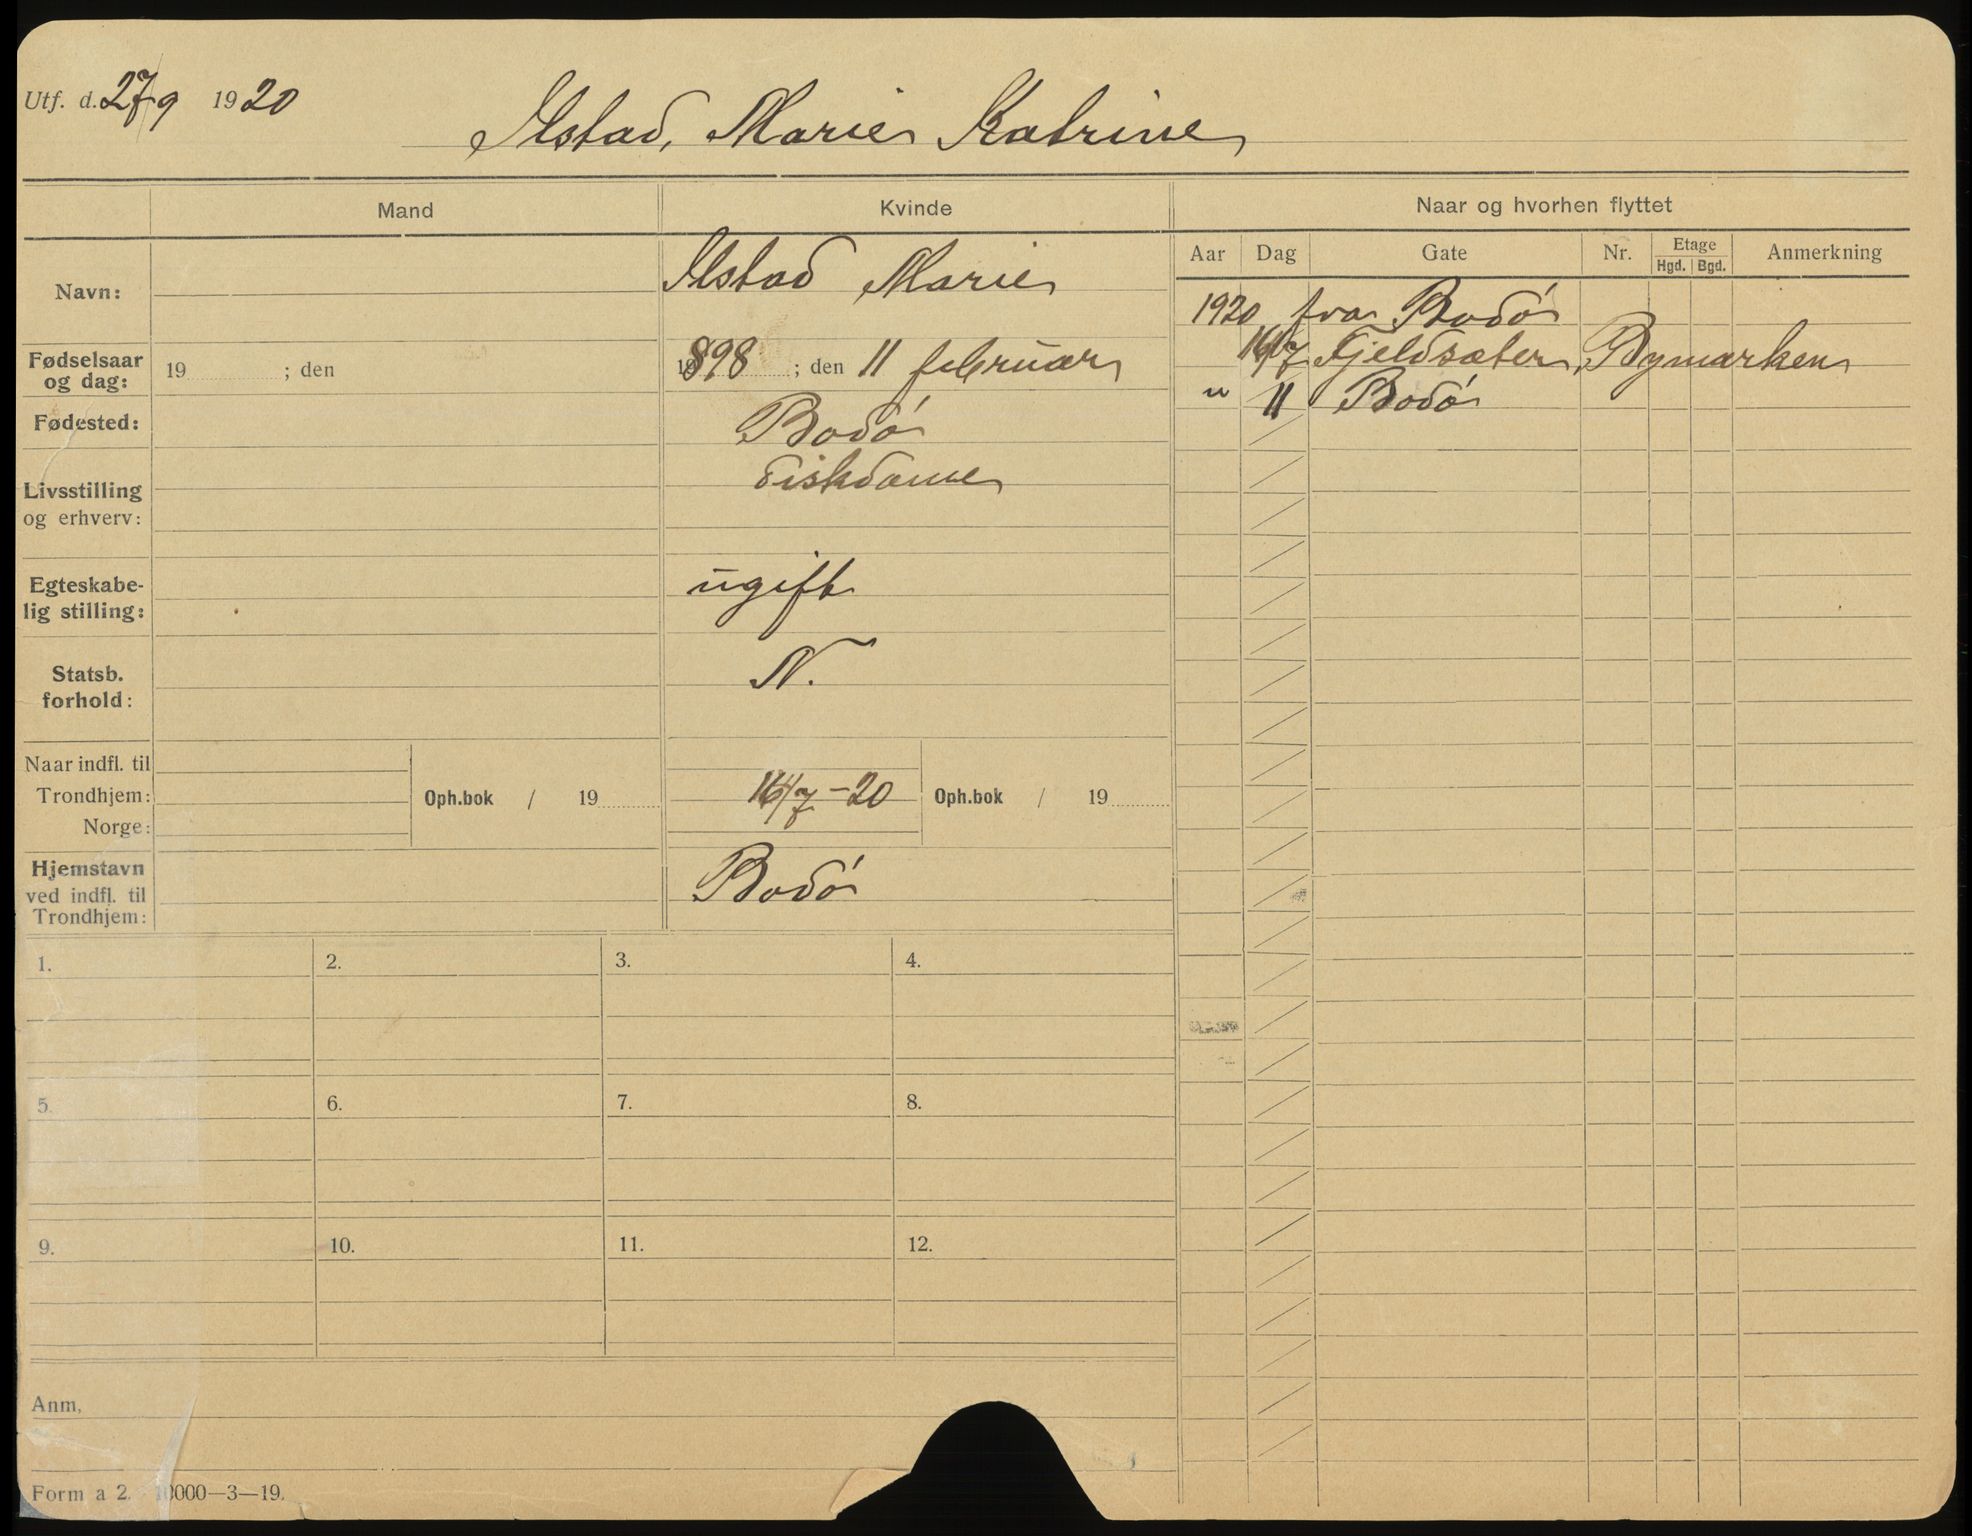 Utf. d. 27/9 1920
Ilstad, Marie Katrine
Mand
Kvinde
Naar og hvorhen flyttet
Aar Dag Gate Nr. Etage Hgd. Bgd. Anmerkning
Navn: Ilstad Marie
Fødselsaar og dag: 19 ; den
898 ; den 11 februar
Fødested: Bodø
Livsstilling og erhverv: diskdame
Egteskabelig stilling: ugift
Statsb. forhold: N.
Naar indfl. til
Trondhjem:
Norge:
Oph.bok / 19
16/7 - 20 Oph.bok / 19
Hjemstavn ved indfl. til Trondhjem: Bodø
1920 fra Bodø
16/7 Fjeldsæter, Bymarken
" 11 Bodø
1. 2. 3. 4.
5. 6. 7. 8.
9. 10. 11. 12.
Anm,
Form a 2. 10000—3—19.